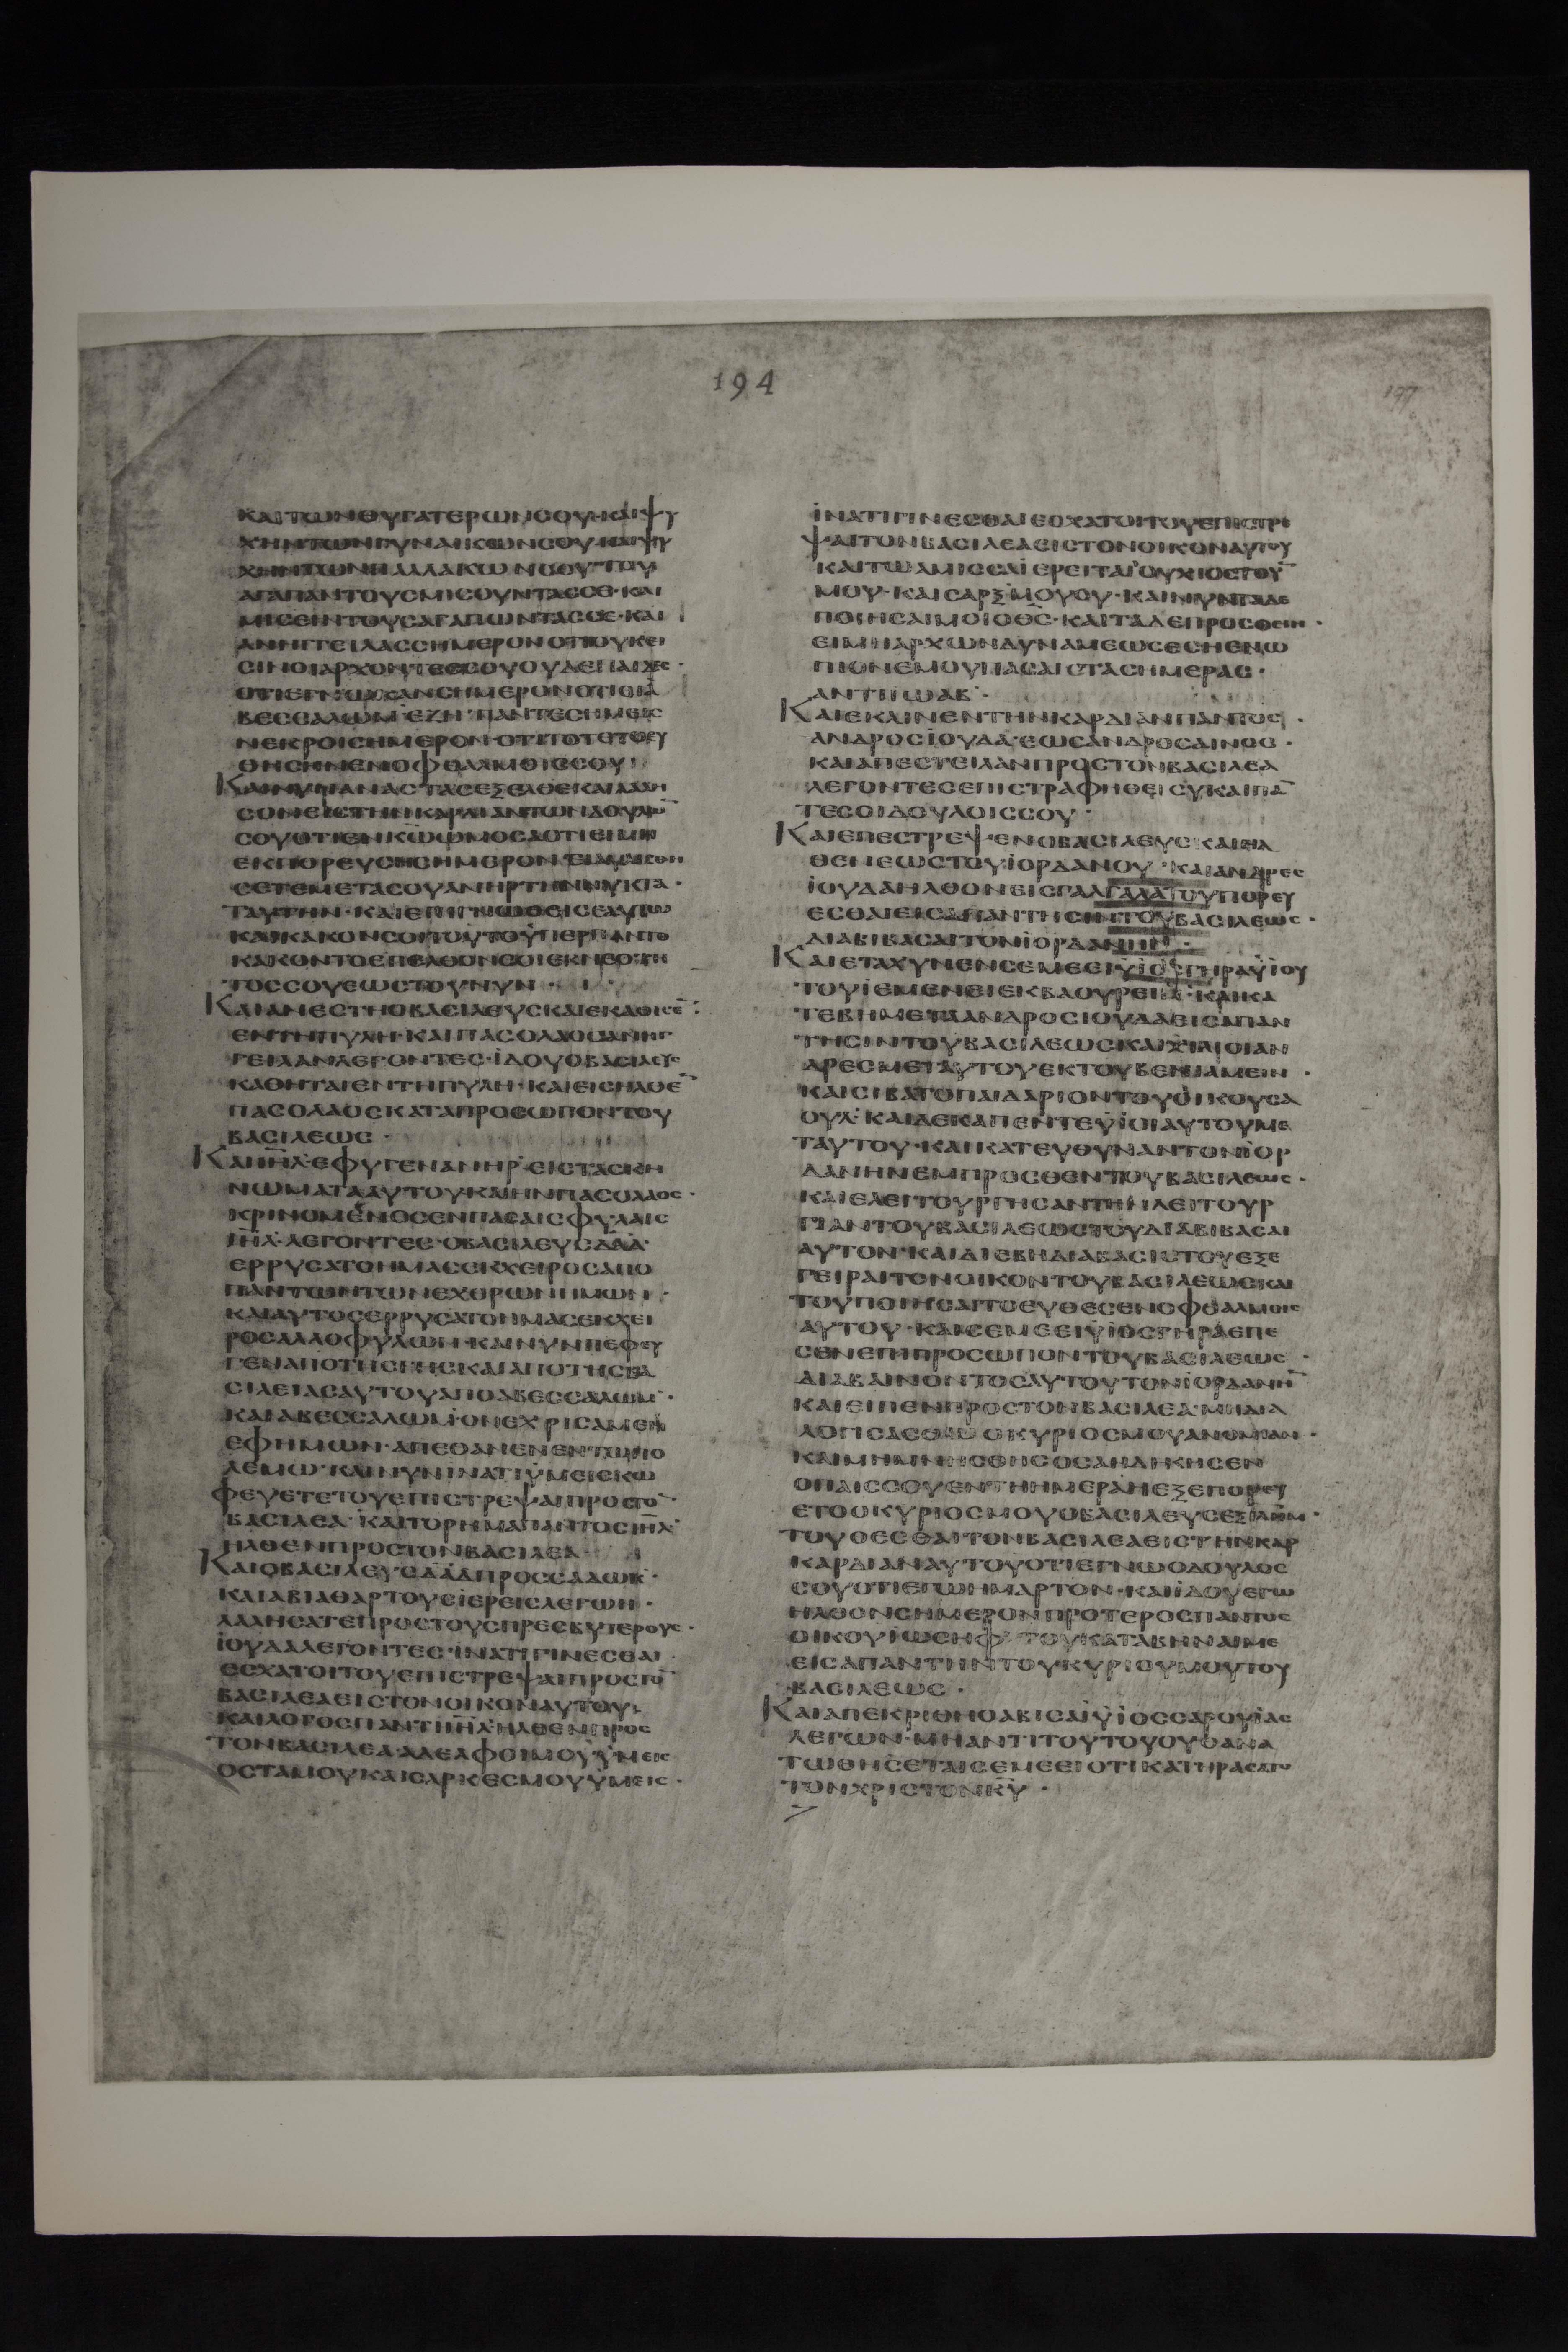 194
197
ΚΑΙΤΩΝΘΥΓΑΤΕΡΩΝΣΟΥ·ΚΑΙΨΥ
ΧΗΝΤΩΝΓΥΝΑΙΚΩΝΣΟΥ·ΚΑΙΨΥ
ΧΗΝΤΩΝΠΑΛΛΑΚΩΝΣΟΥ·ΤΟΥ
ΑΓΑΠΑΝΤΟΥΣΜΙΣΟΥΝΤΑΣΣΕ·ΚΑΙ
ΜΙΣΕΙΝΤΟΥΣΑΓΑΠΩΝΤΑΣΣΕ·ΚΑΙ
ΑΝΗΓΓΕΙΛΑΣΣΗΜΕΡΟΝΟΤΙΟΥΚΕΙ
ΣΙΝΟΙΑΡΧΟΝΤΕΣΣΟΥΟΥΔΕΠΑΙΔΕΣ·
ΟΤΙΕΓΝΩΚΑΝΣΗΜΕΡΟΝΟΤΙΕΙΑ
ΒΕΣΣΑΛΩΜ·ΕΖΗ·ΠΑΝΤΕΣΗΜΕΙΣ
ΝΕΚΡΟΙΣΗΜΕΡΟΝ·ΟΤΙΤΟΤΕΤΟΕΥ
ΘΗΣΗΜΕΝΟΦΘΑΛΜΟΙΣΣΟΥ
ΚΑΙΝΥΝΑΝΑΣΤΑΣΕΞΕΛΘΕΚΑΙΛΑΛΗ
ΣΟΝΕΙΣΤΗΝΚΑΡΔΙΑΝΤΩΝΔΟΥΛΩ̄
ΣΟΥΟΤΙΕΝΚ̅Ω̅ΩΜΟΣΑΟΤΙΕΙΜΗ
ΕΚΠΟΡΕΥΣΗΣΗΜΕΡΟΝ
ΣΕΤΕΜΕΤΑΣΟΥΑΝΗΡΤΗΝΝΥΚΤΑ·
ΤΑΥΤΗΝ·ΚΑΙΕΠΙΓΝΩΘΕΙΣΕΑΥΤΩ
ΚΑΙΚΑΚΟΝΣΟΙΤΟΥΤΟΫΠΕΡΠΑΝΤΟ
ΚΑΚΟΝΤΟΕΠΕΛΘΟΝΣΟΙΕΚΝΕΟΤΗ
ΤΟΣΣΟΥΕΩΣΤΟΥΝΥΝ·
ΚΑΙΑΝΕΣΤΗΟΒΑΣΙΛΕΥΣΚΑΙΕΚΑΘΙΣΕ̄:
ΕΝΤΗΠΥΛΗ·ΚΑΙΠΑΣΟΛΑΟΣΑΝΗΓ
ΓΕΙΛΑΝΛΕΓΟΝΤΕΣ·ΪΔΟΥΟΒΑΣΙΛΕΥΣ
ΚΑΘΗΤΑΙΕΝΤΗΠΥΛΗ·ΚΑΙΕΙΣΗΛΘΕ̄
ΠΑΣΟΛΑΟΣΚΑΤΑΠΡΟΣΩΠΟΝΤΟΥ
ΒΑΣΙΛΕΩΣ·
ΚΑΙΙΗ̅Λ̅·ΕΦΥΓΕΝΑΝΗΡ·ΕΙΣΤΑΣΚΗ
ΝΩΜΑΤΑΑΥΤΟΥΚΑΙΗΝΠΑΣΟΛΑΟΣ·
ΚΡΙΝΟΜΕΝΟΣΕΝΠΑΣΑΙΣΦΥΛΑΙΣ
ΙΗ̅Λ̅·ΛΕΓΟΝΤΕΣ·ΟΒΑΣΙΛΕΥΣΔ̅Α̅Δ̅·
ΕΡΡΥΣΑΤΟΗΜΑΣΕΚΧΕΙΡΟΣΑΠΟ
ΠΑΝΤΩΝΤΩΝΕΧΘΡΩΝΗΜΩΝ·
ΚΑΙΑΥΤΟΣΕΡΡΥΣΑΤΟΗΜΑΣΕΚΧΕΙ
ΡΟΣΑΛΛΟΦΥΛΩΝ·ΚΑΙΝΥΝΠΕΦΕΥ
ΓΕΝΑΠΟΤΗΣΓΗΣΚΑΙΑΠΟΤΗΣΒΑ
ΣΙΛΕΙΑΣΑΥΤΟΥΑΠΟΑΒΕΣΣΑΛΩΜ·
ΚΑΙΑΒΕΣΣΑΛΩΜ·ΟΝΕΧΡΙΣΑΜΕΝ
ΕΦΗΜΩΝ·ΑΠΕΘΑΝΕΝΕΝΤΩΠΟ
ΛΕΜΩ·ΚΑΙΝΥΝΪΝΑΤΙΫΜΕΙΣΚΩ
ΦΕΥΕΤΕΤΟΥΕΠΙΣΤΡΕΨΑΙΠΡΟΣΤΟ̄
ΒΑΣΙΛΕΑ·ΚΑΙΤΟΡΗΜΑΠΑΝΤΟΣΙΗ̅Λ̅
ΗΛΘΕΝΠΡΟΣΤΟΝΒΑΣΙΛΕΑ
ΚΑΙΟΒΑΣΙΛΕΥΣΔ̅Α̅Δ̅ΠΡΟΣΣΑΔΩΚ·
ΚΑΙΑΒΙΑΘΑΡΤΟΥΣΪΕΡΕΙΣΛΕΓΩΝ·
ΛΑΛΗΣΑΤΕΠΡΟΣΤΟΥΣΠΡΕΣΒΥΤΕΡΟΥΣ·
ΪΟΥΔΑΛΕΓΟΝΤΕΣ·ΪΝΑΤΙΓΙΝΕΣΘΑΙ
ΕΣΧΑΤΟΙΤΟΥΕΠΙΣΤΡΕΨΑΙΠΡΟΣΤΟ̄
ΒΑΣΙΛΕΑΕΙΣΤΟΝΟΙΚΟΝΑΥΤΟΥ
ΚΑΙΛΟΓΟΣΠΑΝΤΙΗ̅Λ̅·ΗΛΘΕΝΠΡΟΣ
ΤΟΝΒΑΣΙΛΕΑ·ΑΔΕΛΦΟΙΜΟΥΫΜΕΙΣ
ΟΣΤΑΜΟΥΚΑΙΣΑΡΚΕΣΜΟΥΫΜΕΙΣ·
ΪΝΑΤΙΓΙΝΕΣΘΑΙΕΣΧΑΤΟΙΤΟΥΕΠΙΣΤΡΕ
ΨΑΙΤΟΝΒΑΣΙΛΕΑΕΙΣΤΟΝΟΙΚΟΝΑΥΤΟΥ
ΚΑΙΤΩΑΜΙΣΣΑΪΕΡΕΙΤΑΙ·ΟΥΧΙΟΣΤΟῩ
ΜΟΥ·ΚΑΙΣΑΡΞΜΟΥΣΥ·ΚΑΙΝΥΝΤΑΔΕ
ΠΟΙΗΣΑΙΜΟΙΟΘ̅Σ̅·ΚΑΙΤΑΔΕΠΡΟΣΘΕΙΗ·
ΕΙΜΗΑΡΧΩΝΔΥΝΑΜΕΩΣΕΣΗΕΝΩ
ΠΙΟΝΕΜΟΥΠΑΣΑΙΣΤΑΣΗΜΕΡΑΣ·
ΑΝΤΙΪΩΑΒ·
ΚΑΙΕΚΛΙΝΕΝΤΗΝΚΑΡΔΙΑΝΠΑΝΤΟΣ·
ΑΝΔΡΟΣΪΟΥΔΑ·ΕΩΣΑΝΔΡΟΣΑΙΝΟΣ·
ΚΑΙΑΠΕΣΤΕΙΛΑΝΠΡΟΣΤΟΝΒΑΣΙΛΕΑ
ΛΕΓΟΝΤΕΣΕΠΙΣΤΡΑΦΗΘΕΙΣΥΚΑΙΠᾹ
ΤΕΣΟΙΔΟΥΛΟΙΣΣΟΥ·
ΚΑΙΕΠΕΣΤΡΕΨΕΝΟΒΑΣΙΛΕΥΣΚΑΙΗΛ
ΘΕΝΕΩΣΤΟΥΪΟΡΔΑΝΟΥ·ΚΑΙΑΝΔΡΕΣ
ΪΟΥΔΑΗΛΘΟΝΕΙΣΓΑΛΓΑΛΑΤΟΥΠΟΡΕΥ
ΕΣΘΑΙΕΙΣΑΠΑΝΤΗΣΙΝΤΟΥΒΑΣΙΛΕΩΣ·
ΔΙΑΒΙΒΑΣΑΙΤΟΝΪΟΡΔΑΝΗΝ·
ΚΑΙΕΤΑΧΥΝΕΝΣΕΜΕΕΙΫΪΟΣΓΗΡΑΫΪΟΥ
ΤΟΥΪΕΜΕΝΕΙΕΚΒΑΟΥΡΕΙΜ·ΚΑΙΚΑ
ΤΕΒΗΜΕΤΑΑΝΔΡΟΣΙΟΥΔΑΕΙΣΑΠΑΝ
ΤΗΣΙΝΤΟΥΒΑΣΙΛΕΩΣΚΑΙΧΙΛΙΟΙΑΝ
ΔΡΕΣΜΕΤΑΥΤΟΥΕΚΤΟΥΒΕΝΙΑΜΕΙΝ·
ΚΑΙΣΙΒΑΤΟΠΑΙΔΑΡΙΟΝΤΟΥΟΙΚΟΥΣΑ
ΟΥΛ·ΚΑΙΔΕΚΑΠΕΝΤΕΫΪΟΙΑΥΤΟΥΜΕ
ΤΑΥΤΟΥ·ΚΑΙΚΑΤΕΥΘΥΝΑΝΤΟΝΪΟΡ
ΔΑΝΗΝΕΜΠΡΟΣΘΕΝΤΟΥΒΑΣΙΛΕΩΣ·
ΚΑΙΕΛΕΙΤΟΥΡΓΗΣΑΝΤΗΝΛΕΙΤΟΥΡ
ΓΙΑΝΤΟΥΒΑΣΙΛΕΩΣΤΟΥΔΙΑΒΙΒΑΣΑΙ
ΑΥΤΟΝ·ΚΑΙΔΙΕΒΗΔΙΑΒΑΣΙΣΤΟΥΕΞΕ
ΓΕΙΡΑΙΤΟΝΟΙΚΟΝΤΟΥΒΑΣΙΛΕΩΣΚΑΙ
ΤΟΥΠΟΙΗΣΑΙΤΟΕΥΘΕΣΕΝΟΦΘΑΛΜΟΙΣ
ΑΥΤΟΥ·ΚΑΙΣΕΜΕΕΙΫΪΟΣΓΗΡΑΕΠΕ
ΣΕΝΕΠΙΠΡΟΣΩΠΟΝΤΟΥΒΑΣΙΛΕΩΣ·
ΔΙΑΒΑΙΝΟΝΤΟΣΑΥΤΟΥΤΟΝΪΟΡΔΑΝΗ̄
ΚΑΙΕΙΠΕΝΠΡΟΣΤΟΝΒΑΣΙΛΕΑ·ΜΗΔΙΑ
ΛΟΓΙΣΑΣΘΩΟΚΥΡΙΟΣΜΟΥΑΝΟΜΙΑΝ·
ΚΑΙΜΗΜΝΗΣΘΗΣΟΣΑΗΔΙΚΗΣΕΝ
ΟΠΑΙΣΣΟΥΕΝΤΗΗΜΕΡΑΗΕΞΕΠΟΡΕΥ
ΕΤΟΟΚΥΡΙΟΣΜΟΥΟΒΑΣΙΛΕΥΣΕΞΪΛΗΜ·
ΤΟΥΘΕΣΘΑΙΤΟΝΒΑΣΙΛΕΑΕΙΣΤΗΝΚΑΡ
ΚΑΡΔΙΑΝΑΥΤΟΥΟΤΙΕΓΝΩΟΔΟΥΛΟΣ
ΣΟΥΟΤΙΕΓΩΗΜΑΡΤΟΝ·ΚΑΙΪΔΟΥΕΓΩ
ΗΛΘΟΝΣΗΜΕΡΟΝΠΡΟΤΕΡΟΣΠΑΝΤΟΣ
ΟΙΚΟΥΪΩΣΗΦ·ΤΟΥΚΑΤΑΒΗΝΑΙΜΕ
ΕΙΣΑΠΑΝΤΗΝΤΟΥΚΥΡΙΟΥΜΟΥΤΟΥ
ΒΑΣΙΛΕΩΣ·
ΚΑΙΑΠΕΚΡΙΘΗΟΑΒΙΣΑΪΫΪΟΣΣΑΡΟΥΪΑΣ
ΛΕΓΩΝ·ΜΗΑΝΤΙΤΟΥΤΟΥΟΥΘΑΝΑ
ΤΩΘΗΣΕΤΑΙΣΕΜΕΕΙΟΤΙΚΑΤΗΡΑΣΑΤΟ
ΤΟΝΧΡΙΣΤΟΝΚ̅Υ̅·